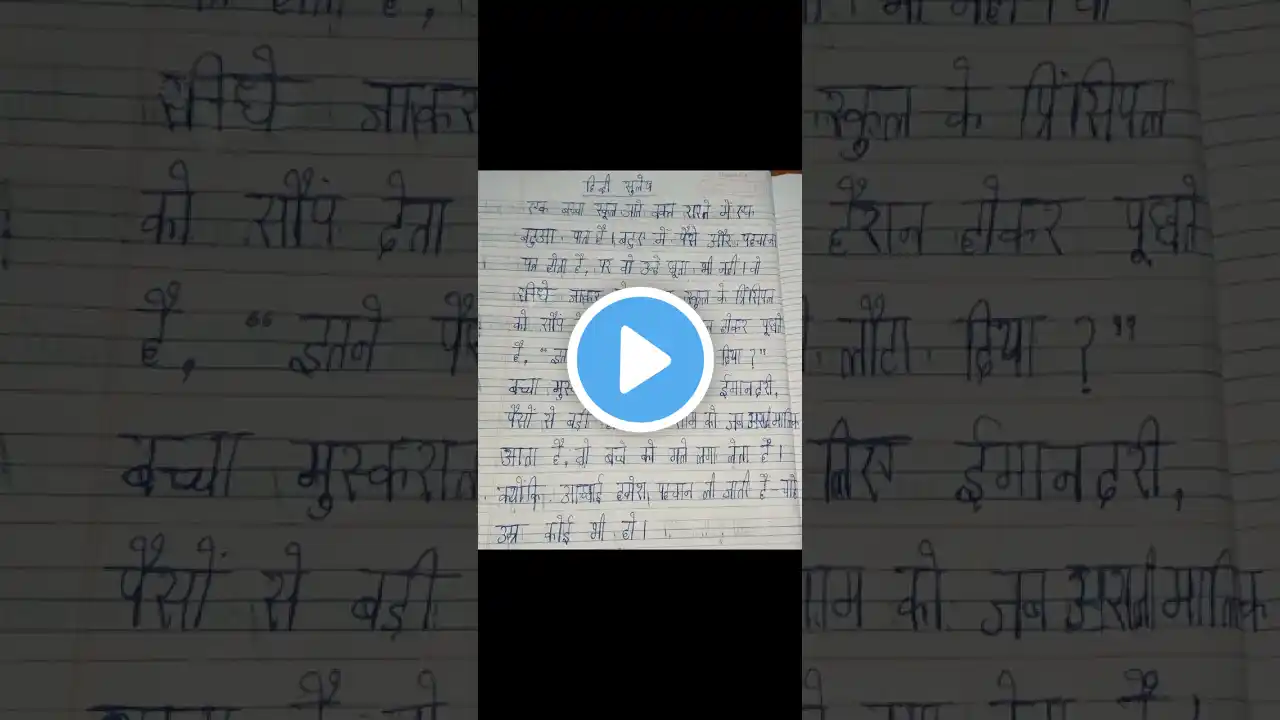 हिन्दी सुलेख
एक बच्चा स्कूल जाते वक्त रास्ते में एक
बटुआ पाता है। बटुए में पैसे और पहचान
पत्र होता है, पर वो उन्हें छूता भी नहीं। वो
सीधे जाकर स्कूल के प्रिंसिपल
को सौंप देता हैरान होकर पूछते
है, "इतने पैसे लौटा दिया ?"
बच्चा मुस्कराता लिए ईमानदरी,
पैसों से बड़ी शाम को जब असली मालिक
आता है, वो बच्चे को गले लगा लेता है।
क्योंकि अच्छाई हमेशा पहचान ली जाती है - चाहे
उम्र कोई भी हो।